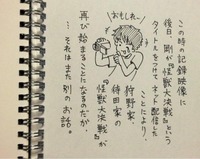 この時の記録映像に
後日、剛が『怪獣大決戦』という
タイトルをつけてネット配信した
ことにより、
おもしれー
狩野家、
待田家の
『怪獣大決戦』が
再び始まることになるのだが、
…それはまた別のお話。